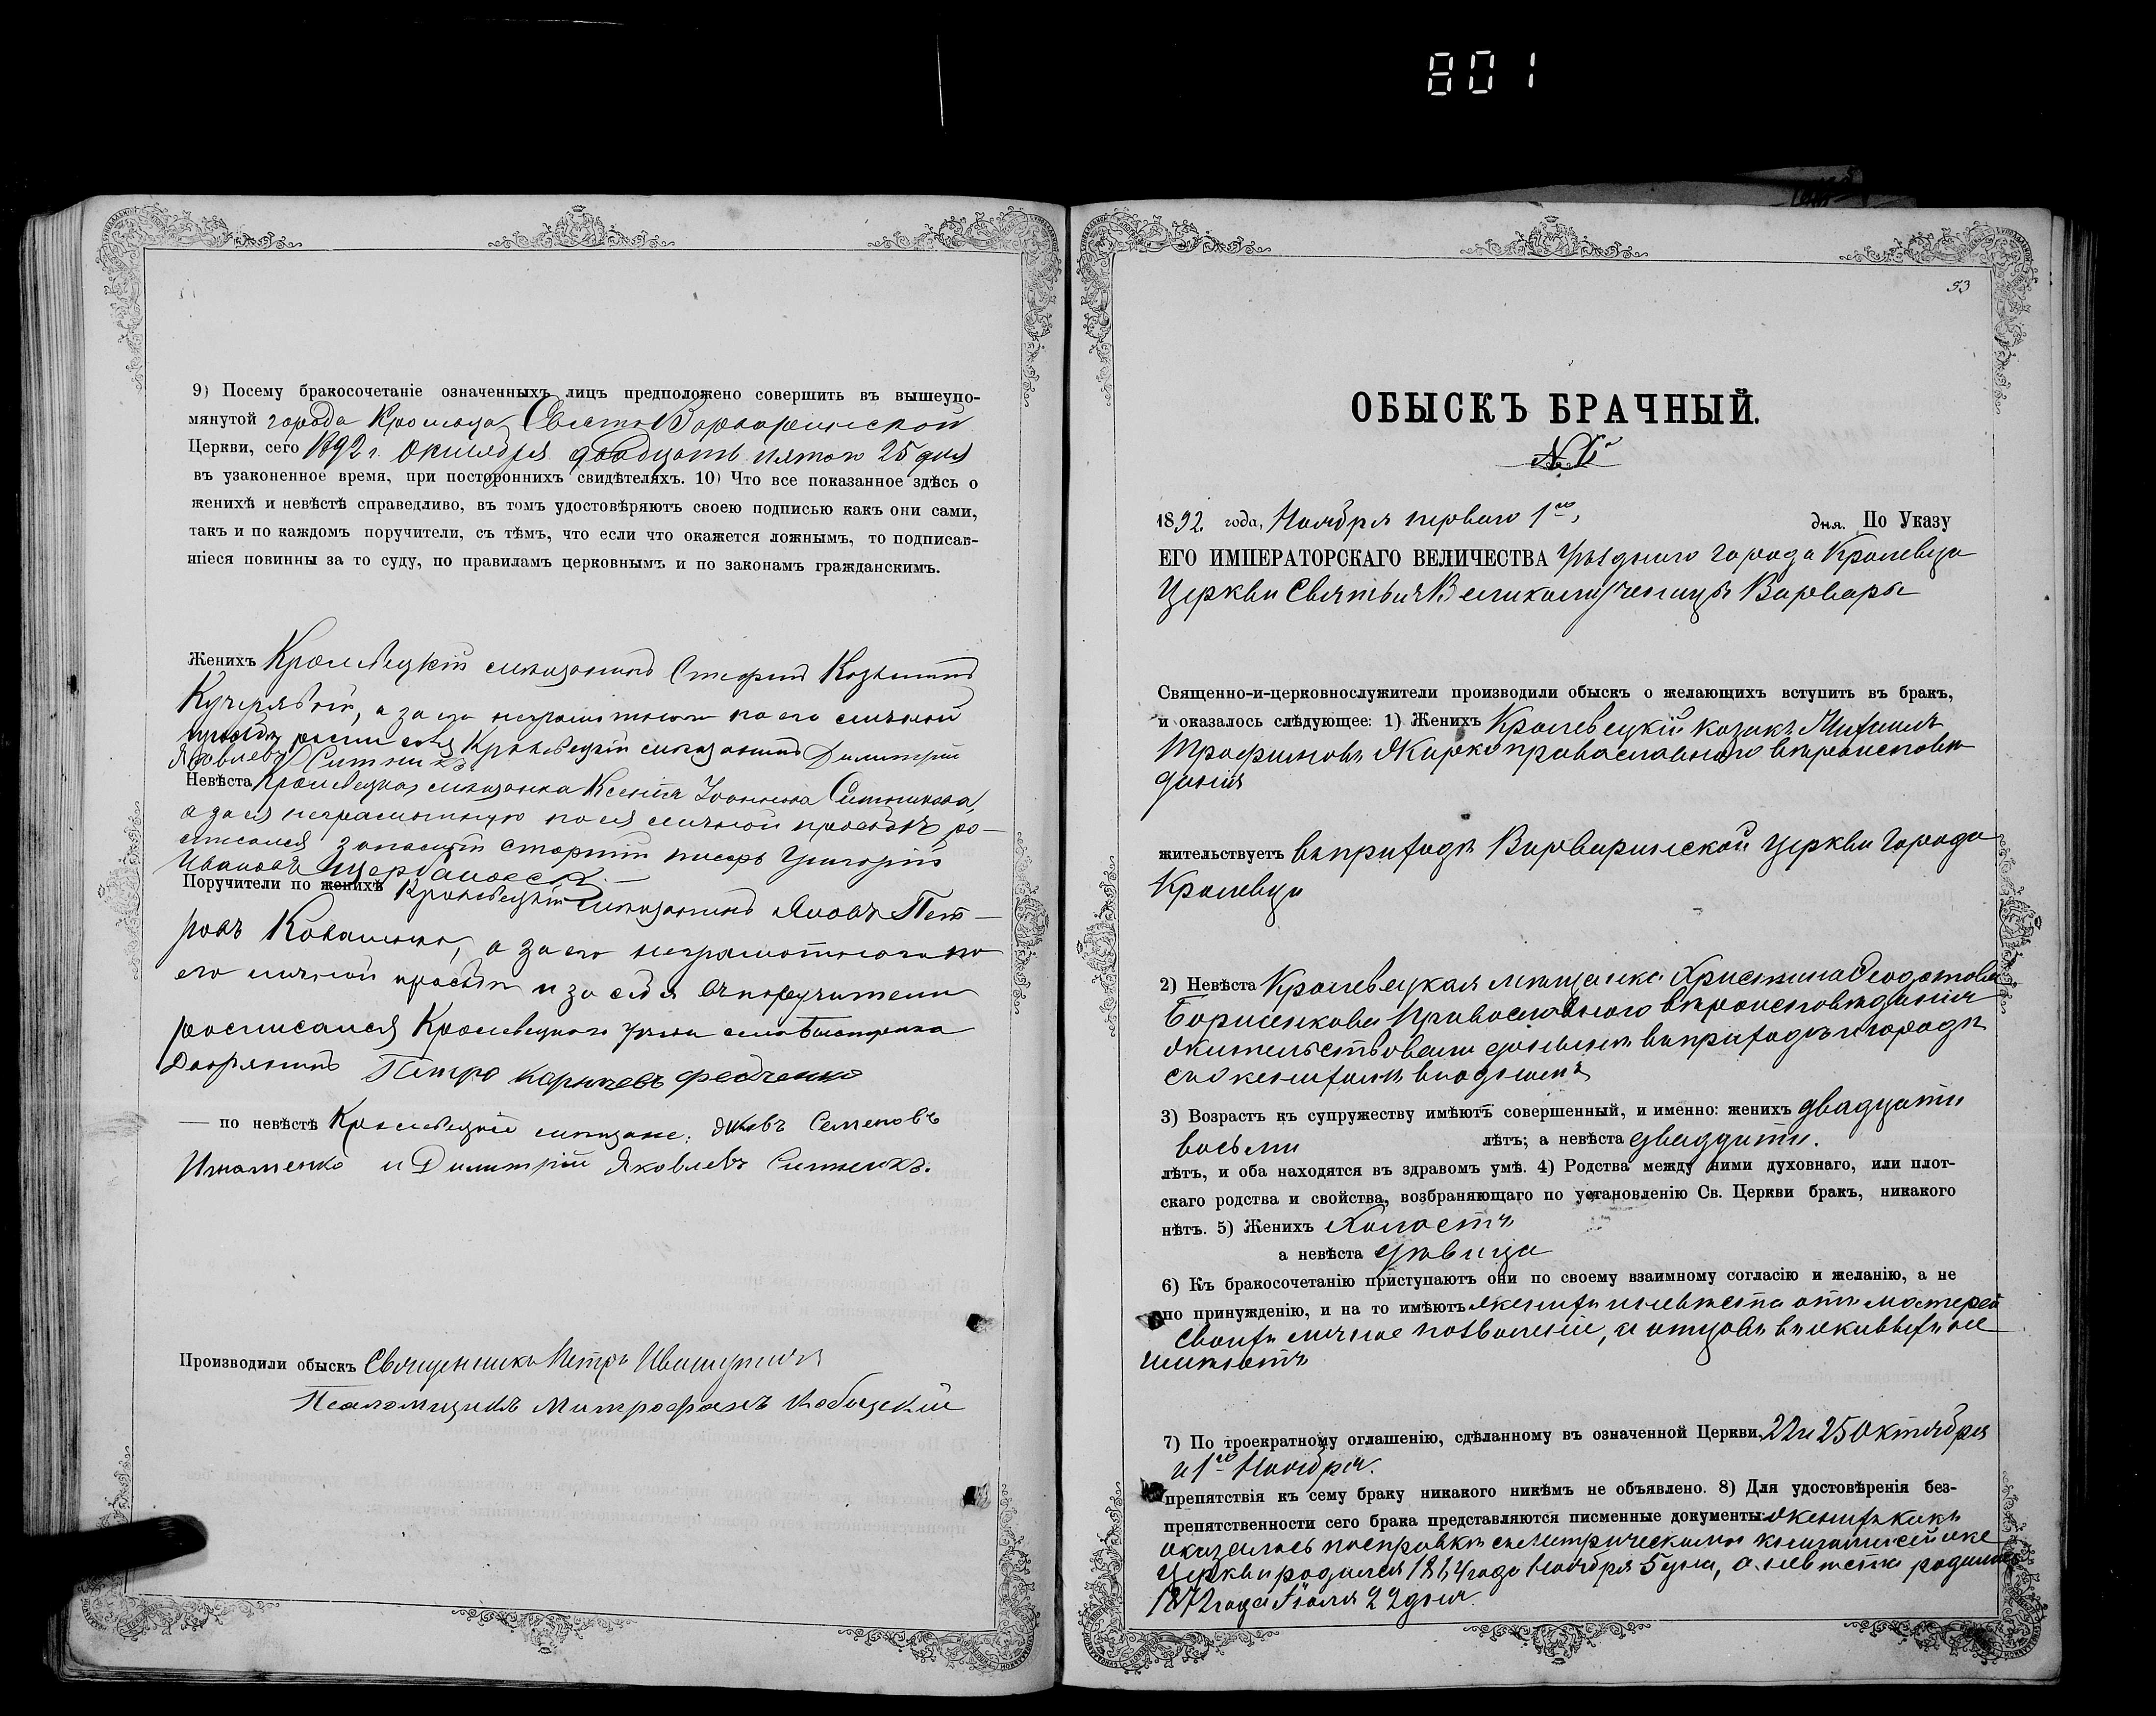 801
9) Посему бракосочетаніе означенныхъ лицъ предположено совершить въ вышеупо-
мянутой города Кролевца Свято Варваринской
Церкви, сего 1892 г. Октября двадцать пятого 25 дня
въ узаконенное время, при постороннихъ свидѣтеляхъ. 10) Что все показанное здѣсь о
женихѣ и невѣстѣ справедливо, въ томъ удостовѣряютъ своею подписью какъ они сами,
такъ и по каждомъ поручители, съ тѣмъ, что если что окажется ложнымъ, то подписав-
шіеся повинны за то суду, по правиламъ церковнымъ и по законамъ гражданскимъ.
Женихъ Кролевецкій мѣщанинъ Стефанъ Козьминъ
Кучерявый, а за его неграмотного по его личной
просьбѣ росписался Кролевецкій мѣщанинъ Димитрій
Яковлевъ Ситникъ
Невѣста Кролевецкая мѣщанка Ксенія Іоаннова Ситникова,
а за ея неграмотную по ея личной просьбѣ ро-
списался запасный старшій писарь Григорій
Ивановъ
Поручители по женихѣ Кролевецкій мѣщанинъ Яковъ Пет-
ровъ Коваленко, а за его неграмотного по
его личной просьбѣ и за себя поручителя
росписался Кролевецкого уѣзда села
Дворянинъ Петро Федченко
— по невѣстѣ Кролевецкіе мѣщане: Яковъ Семеновъ
Игнатенко и Димитрій Яковлевъ Ситникъ.
Производили обыскъ Священникъ Петръ
Псаломщикъ Митрофанъ
53
ОБЫСКЪ БРАЧНЫЙ.
№
1892 года, Ноября первого 1го, дня. По Указу
ЕГО ИМПЕРАТОРСКАГО ВЕЛИЧЕСТВА Уѣздного города Кролевца
Церкви Святыя Великомученицы Варвары
Священно-и-церковнослужители производили обыскъ о желающихъ вступить въ бракъ,
и оказалось слѣдующее: 1) Женихъ Кролевецкій козакъ Михаилъ
Трофимовъ Жирко православного вѣроисповѣ-
данія
жительствуетъ въ приходѣ Варваринской церкви города
Кролевца
2) Невѣста Кролевецкая мѣщанка Христина Феодотова
Борисенкова православного вѣроисповѣданія
жительствовала до нынѣ въ приходѣ и городѣ
съ женихомъ въ одномъ
3) Возрастъ къ супружеству имѣютъ совершенный, и именно: женихъ двадцати
восьми лѣтъ; а невѣста двадцати.
лѣтъ, и оба находятся въ здравомъ умѣ. 4) Родства между ними духовнаго, или плот-
скаго родства и свойства, возбраняющаго по установленію Св. Церкви бракъ, никакого
нѣтъ. 5) Женихъ Холостъ
а невѣста дѣвица
6) Къ бракосочетанію приступаютъ они по своему взаимному согласію и желанію, а не
по принужденію, и на то имѣютъ женихъ и невѣста отъ матерей
своихъ личное позволеніе, а отцовъ въ живыхъ не
имѣютъ
7) По троекратному оглашенію, сдѣланному въ означенной Церкви, 22 и 25 Октября
и 1го Ноября.
препятствія къ сему браку никакого никѣмъ не объявлено. 8) Для удостовѣренія без-
препятственности сего брака представляются писменные документы: женихъ какъ
оказалось по справкѣ съ метрическими книгами сей же
церкви родился 1864 года Ноября 5 дня, а невѣста родилась
1872 года Іюля 22 дня.